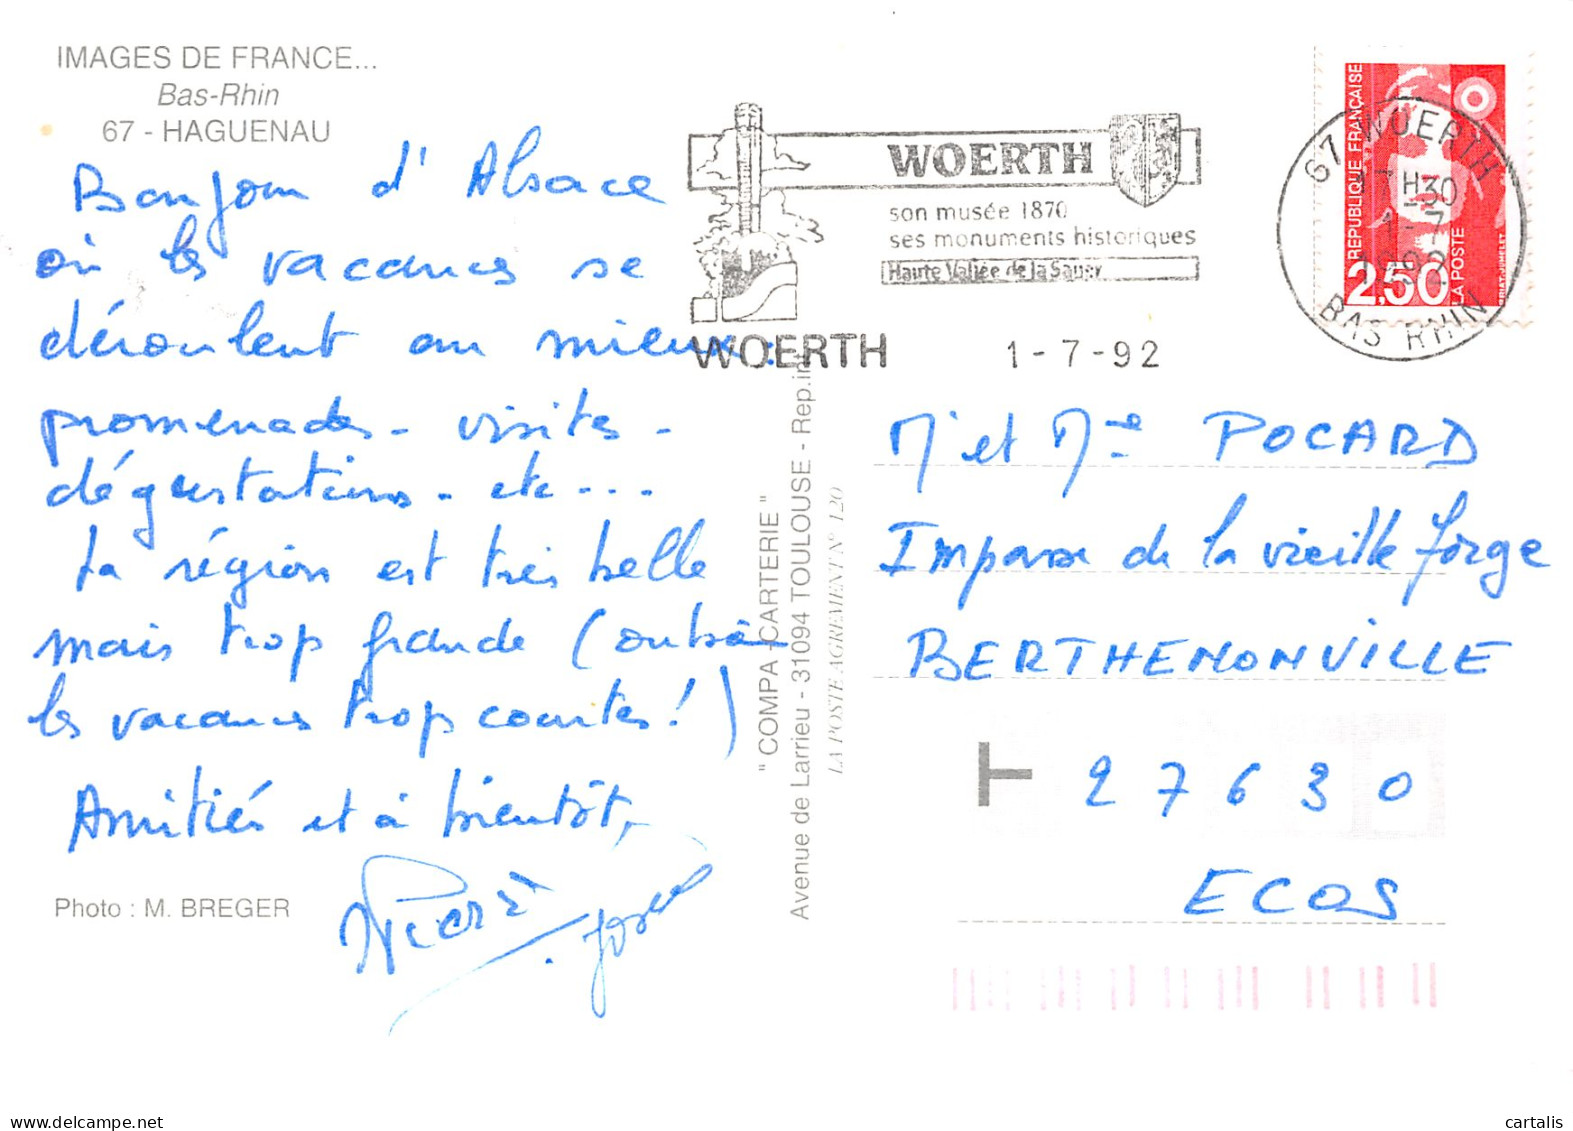 IMAGES DE FRANCE...
Bas-Rhin
67 - HAGUENAU
Bonjour d'Alsace
où les vacances se
déroulent au mieux :
promenades - visites -
dégustations - etc ...
La région est très belle
mais trop grande (ou bien
les vacances trop courtes !)
Amitiés et à bientôt,
Pierre
José
Photo : M. BREGER
" COMPA CARTERIE "
Avenue de Larrieu - 31094 TOULOUSE - Rep.int
LA POSTE AGREMENT N° 120
WOERTH
son musée 1870
ses monuments historiques
Haute Vallée de la Sauer
WOERTH
1 - 7 - 92
REPUBLIQUE FRANÇAISE
2,50
LA POSTE
67 WOERTH
17H30
1 - 7
1992
BAS RHIN
Mr et Mme POCARD
Impasse de la vieille forge
BERTHENONVILLE
T 27630
ECOS
delcampe.net
cartalis